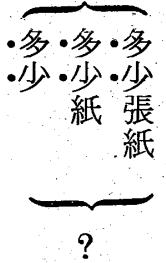 多少張紙
多少紙
多少
?